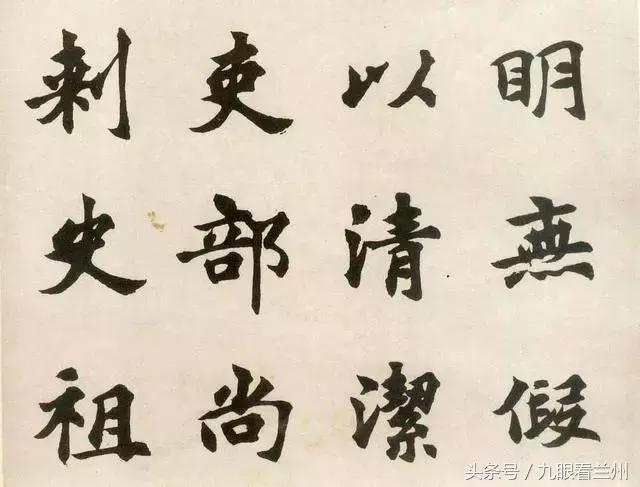 明無假
以清潔
吏部尚
刺史祖
头条号／九眼看兰州